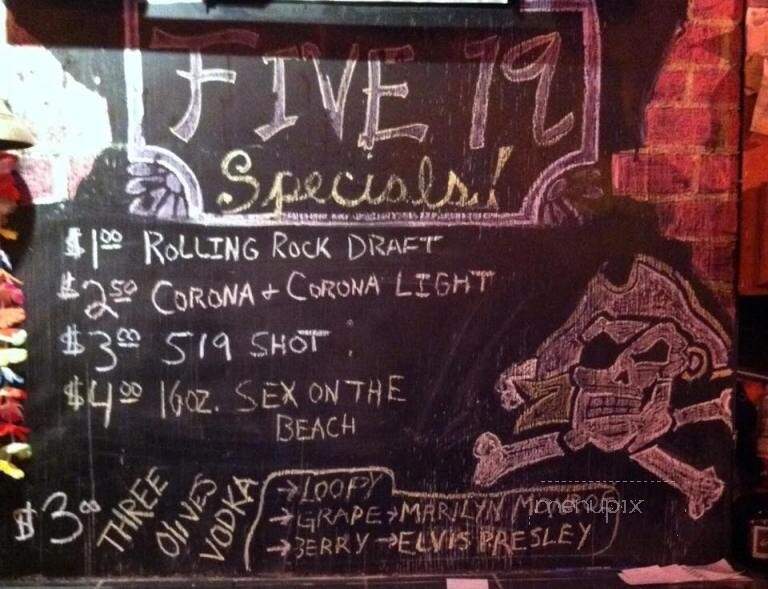 FIVE 19
Specials!
$1.00 ROLLING ROCK DRAFT
$2.50 CORONA + CORONA LIGHT
$3.00 519 SHOT
$4.00 16oz. SEX ON THE
BEACH
$3.00 THREE OLIVES VODKA
→ LOOPY
→ GRAPE → MARILYN
→ BERRY → ELVIS PRESLEY
menupix